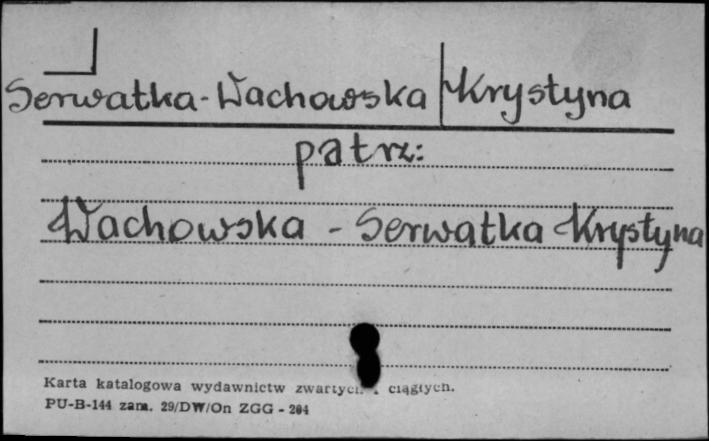 Serwatka-Wachowska Krystyna
patrz:
Wachowska - Serwatka Krystyna
Karta katalogowa wydawnictw zwartych i ciągłych.
PU-B-144 zam. 29/DW/On ZGG - 204